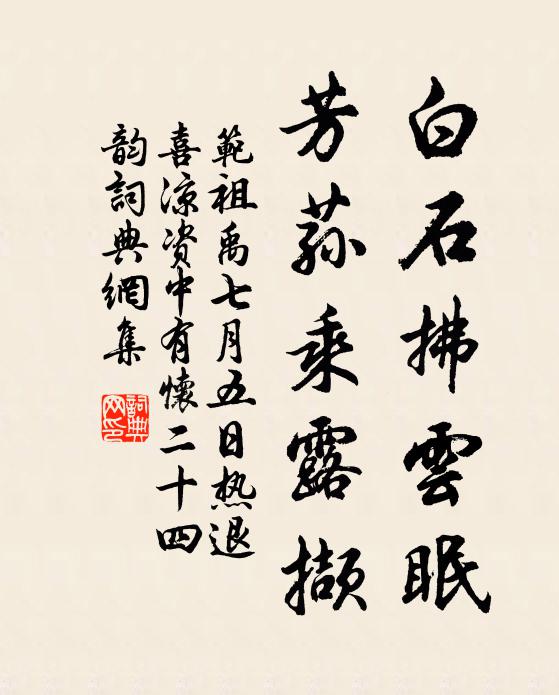 白石拂雲眠
芳蓀乘露擷
範祖禹七月五日热退
喜涼资中有懷二十四
韵詞典網集
詞典
网印